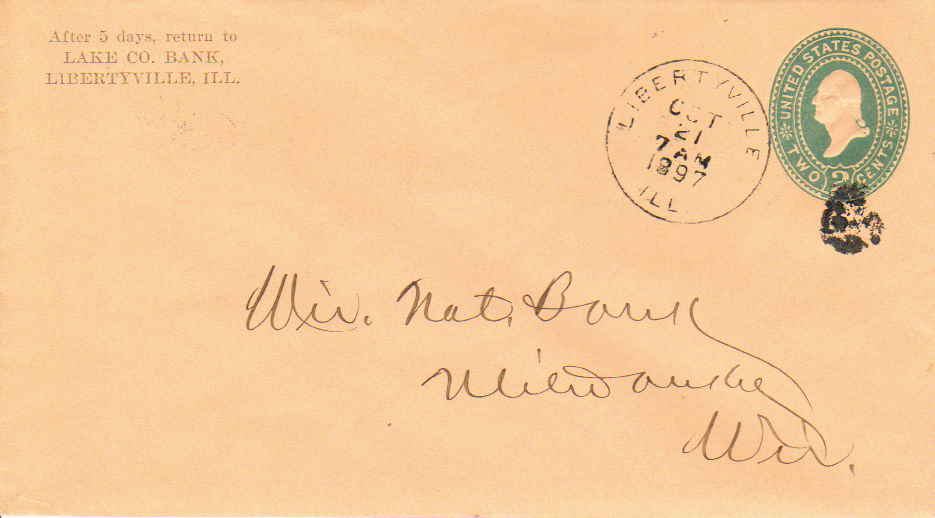 After 5 days, return to
LAKE CO. BANK,
LIBERTYVILLE, ILL.
LIBERTYVILLE
OCT
21
7 AM
1897
ILL
UNITED STATES POSTAGE
TWO 2 CENTS
Wis. Nat. Bank
Milwaukee
Wis.